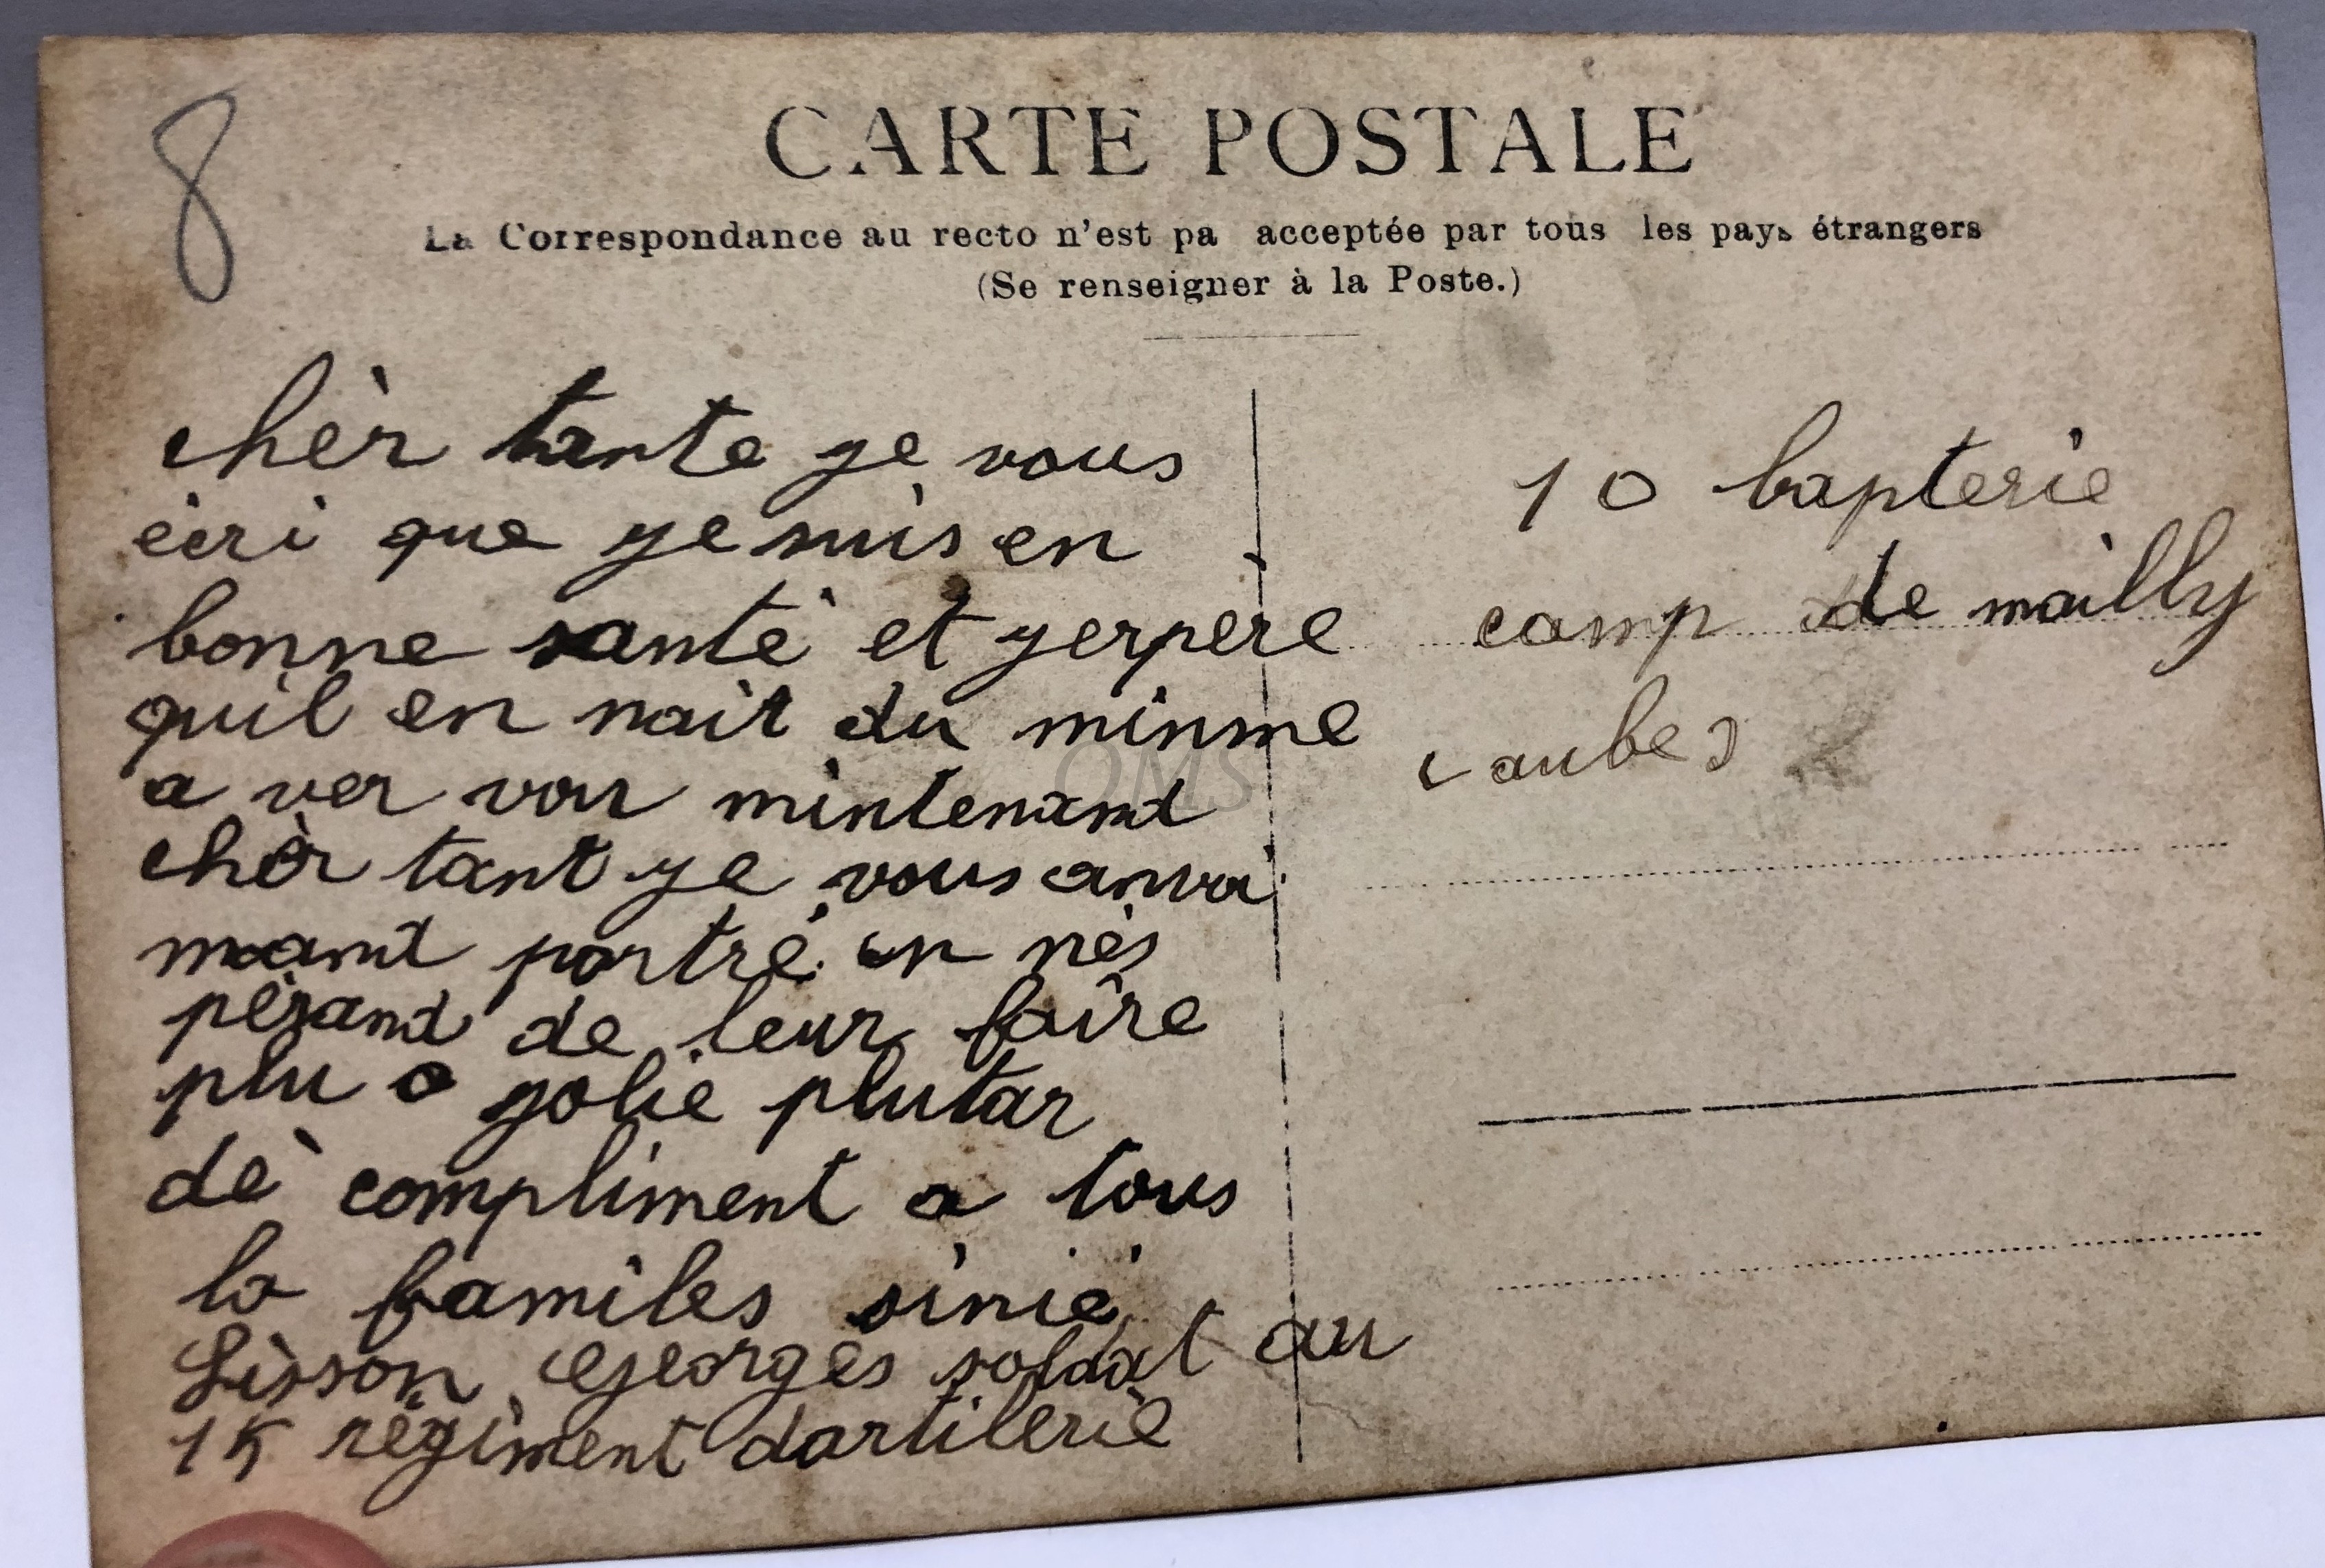 8
CARTE POSTALE
La Correspondance au recto n'est pa acceptée par tous les pays étrangers
(Se renseigner à la Poste.)
chèr tante ye vous
écri que ye suis en
bonne santé et yerpère
quil en nait du minme
a ver vou mintenant
chèr tant ye vous anvoi
mant portré en nès
pérant de leur faire
plu o yolie plutar
dè compliment a tous
la familes sinié
Lisson Georges soldat au
15 régiment dartilerie
10 bapterie
camp de mailly
(aube)
OMS